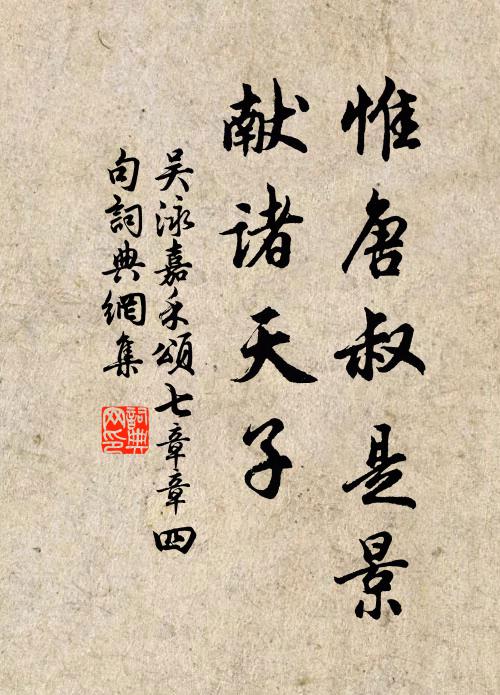 惟唐叔是景
献诸天子
吴泳嘉禾頌七章章四
句詞典網集
詞典
网印